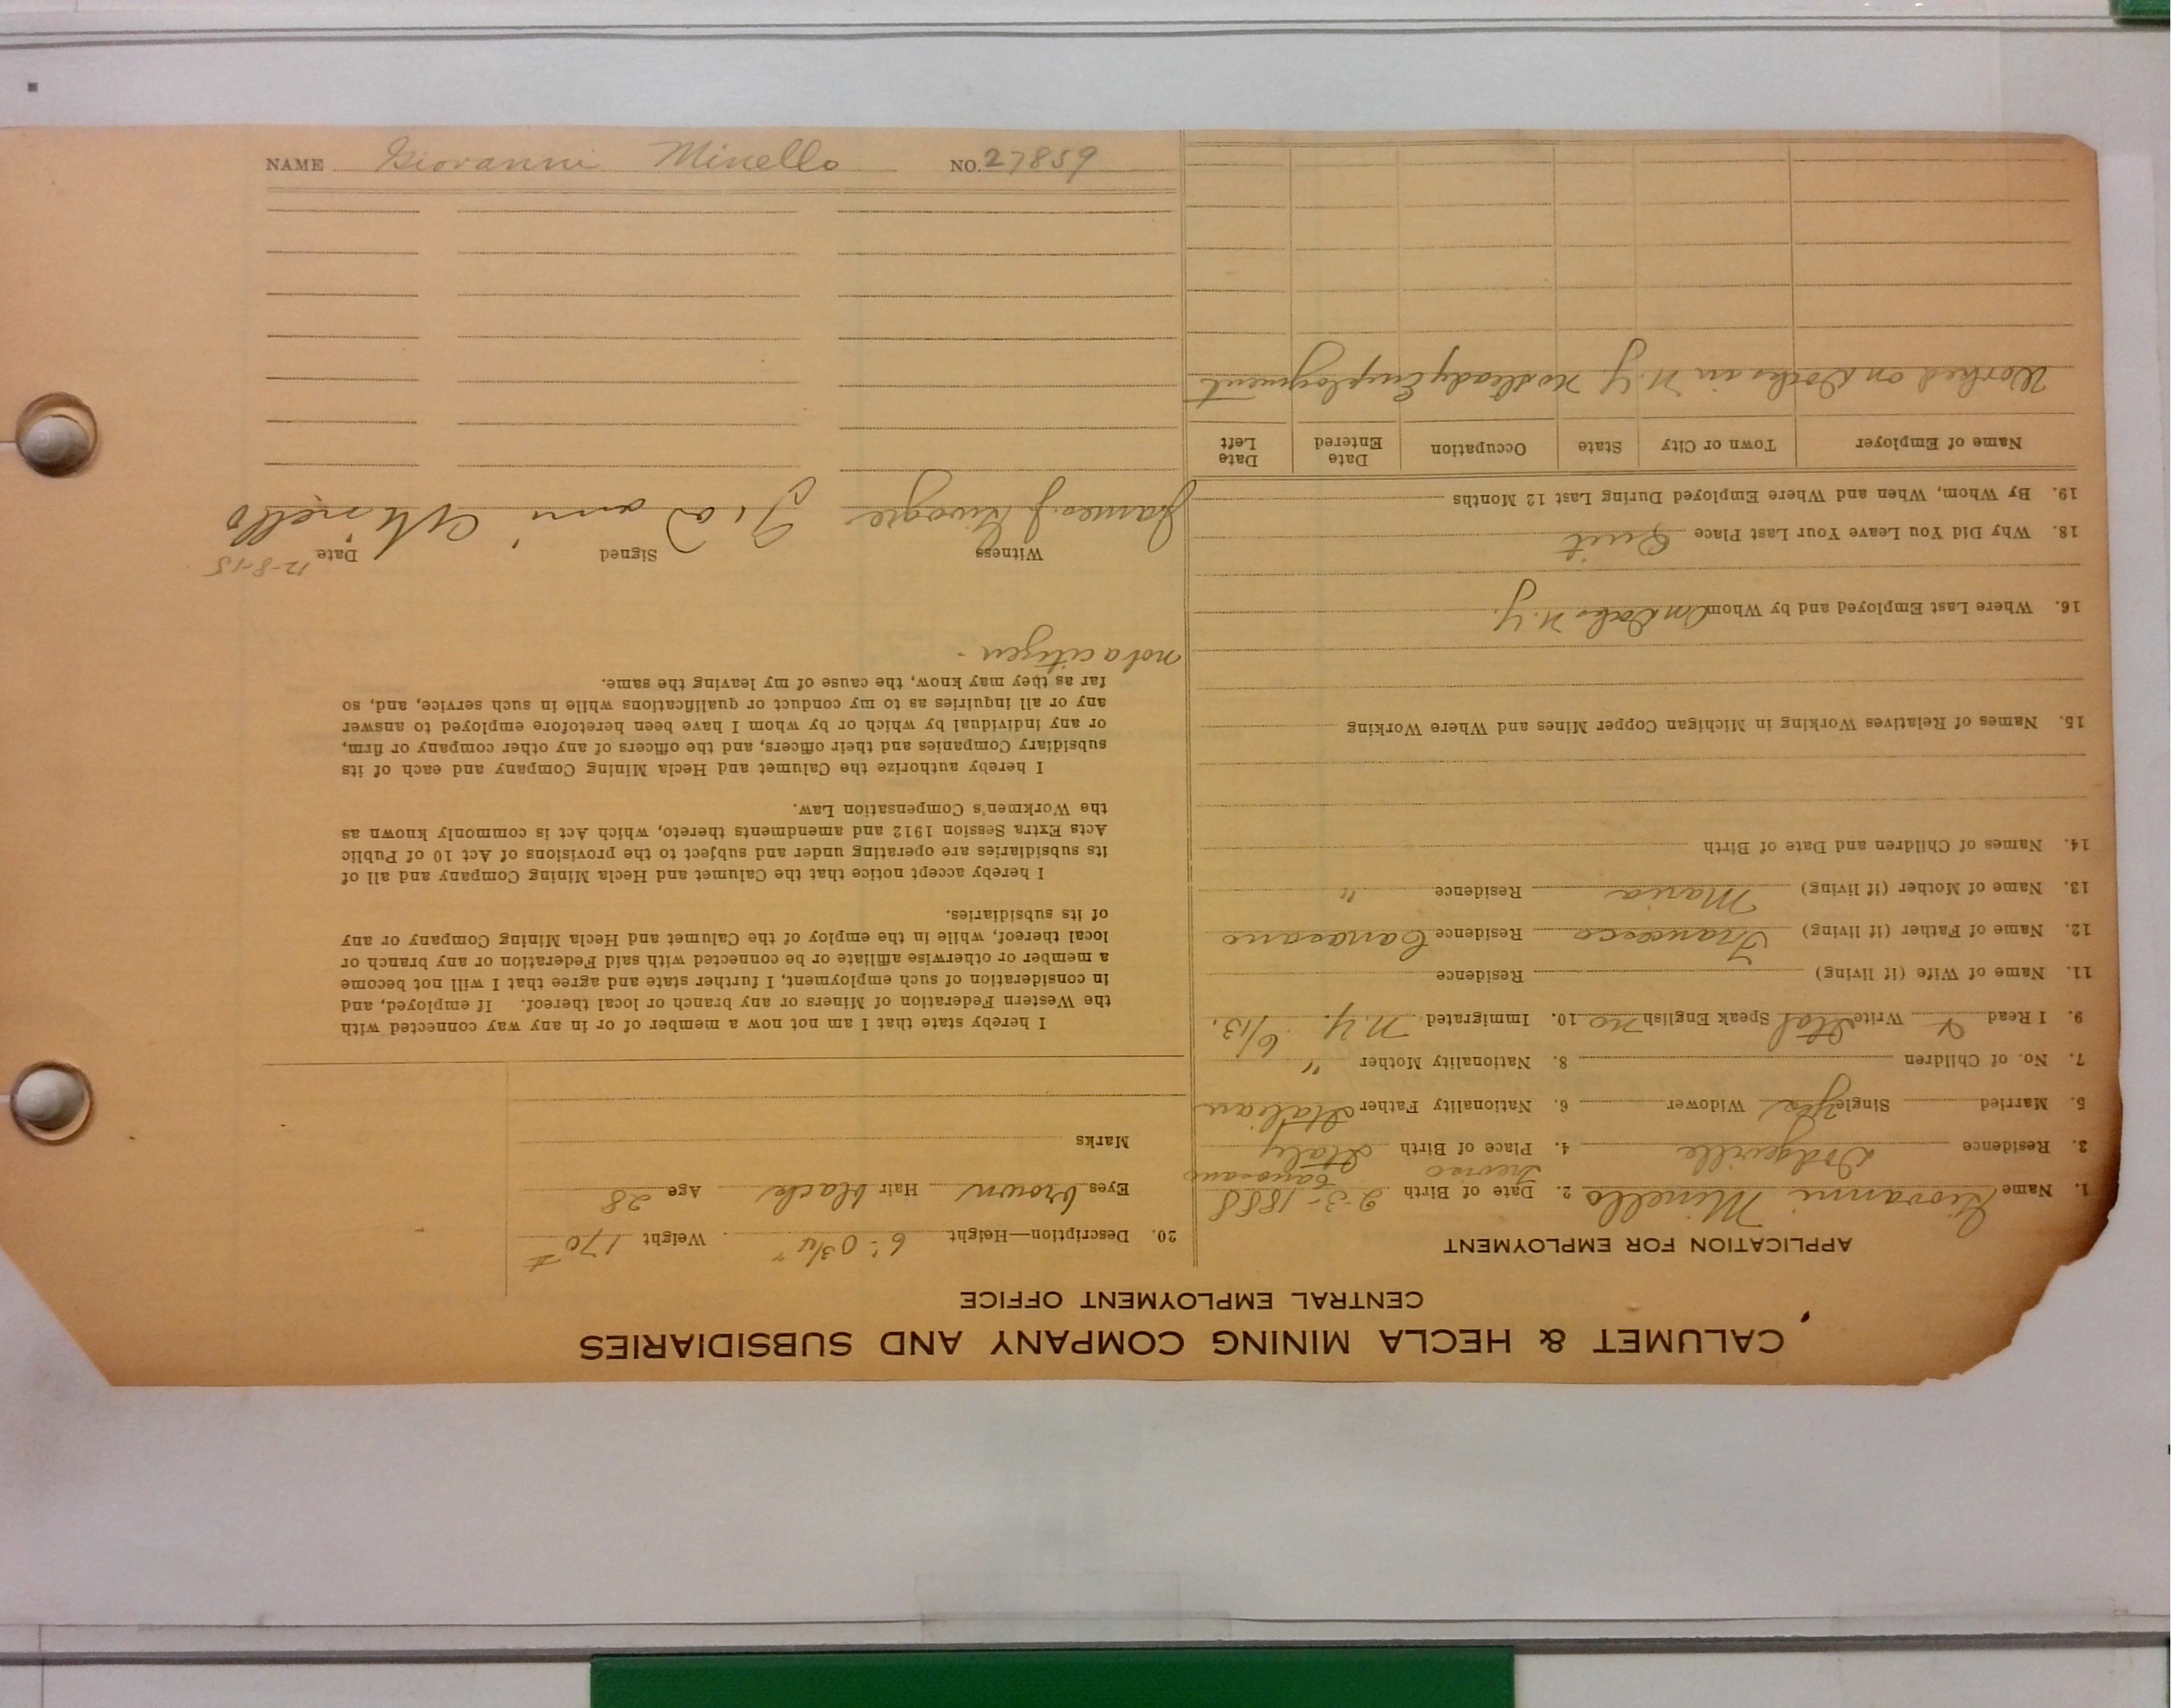 CALUMET & HECLA MINING COMPANY AND SUBSIDIARIES
CENTRAL EMPLOYMENT OFFICE
APPLICATION FOR EMPLOYMENT
1. Name Giovanni Minello 2. Date of Birth 2-3-1888
Treviso Cavasano
3. Residence Dodgeville 4. Place of Birth Italy
5. Married Single Yes Widower 6. Nationality Father Italian
7. No. of Children 8. Nationality Mother "
9. I Read & Write Ital Speak English no 10. Immigrated N.Y. 6/13.
11. Name of Wife (if living) Residence
12. Name of Father (if living) Francesco Residence Cavasano
13. Name of Mother (if living) Maria Residence "
14. Names of Children and Date of Birth
15. Names of Relatives Working in Michigan Copper Mines and Where Working
16. Where Last Employed and by Whom On Docks N.Y.
18. Why Did You Leave Your Last Place Quit
19. By Whom, When and Where Employed During Last 12 Months
Name of Employer Town or City State Occupation Date Entered Date Left
Worked on Docks in N.Y. no steady Employment
20. Description—Height 6'-0 3/4" Weight 170 #
Eyes brown Hair black Age 28
Marks
I hereby state that I am not now a member of or in any way connected with
the Western Federation of Miners or any branch or local thereof. If employed, and
in consideration of such employment, I further state and agree that I will not become
a member or otherwise affiliate or be connected with said Federation or any branch or
local thereof, while in the employ of the Calumet and Hecla Mining Company or any
of its subsidiaries.
I hereby accept notice that the Calumet and Hecla Mining Company and all of
its subsidiaries are operating under and subject to the provisions of Act 10 of Public
Acts Extra Session 1912 and amendments thereto, which Act is commonly known as
the Workmen's Compensation Law.
I hereby authorize the Calumet and Hecla Mining Company and each of its
subsidiary Companies and their officers, and the officers of any other company or firm,
or any individual by which or by whom I have been heretofore employed to answer
any or all inquiries as to my conduct or qualifications while in such service, and, so
far as they may know, the cause of my leaving the same.
not a citizen -
Witness Signed Date 12-8-15
James J Minello
NAME Giovanni Minello NO. 27859